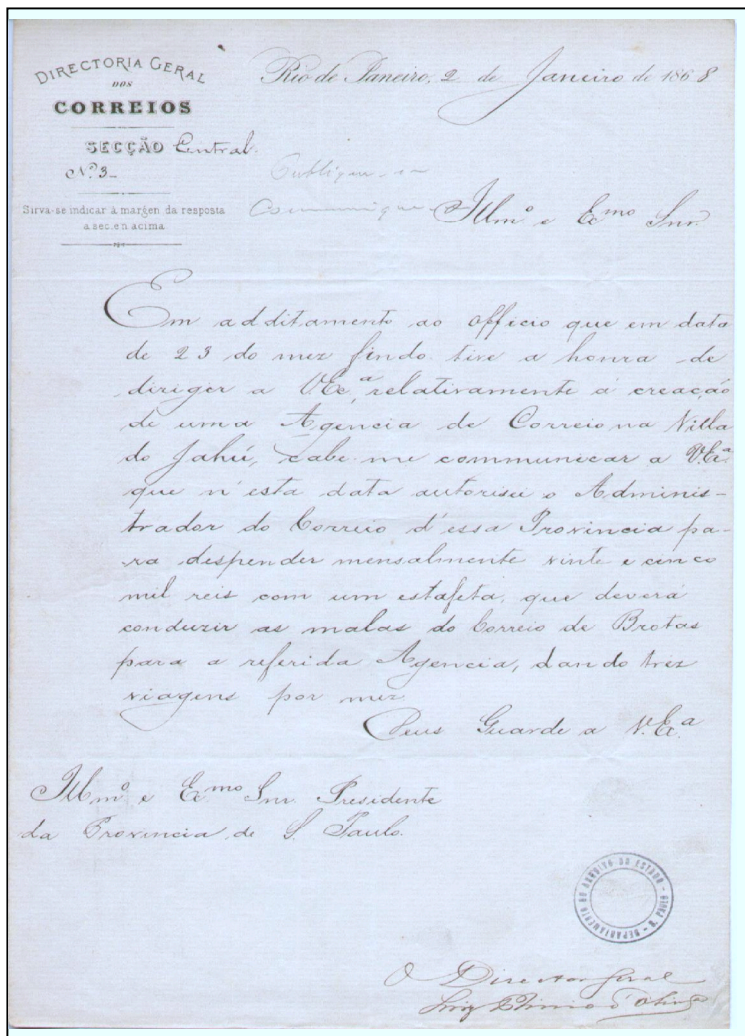 DIRECTORIA GERAL
DOS
CORREIOS
SECÇÃO Central.
Nº 3
Sirva-se indicar à margen da resposta
a sec.en acima
Rio de Janeiro, 2 de Janeiro de 1868
Publique-se
Communique-se
Illmº e Exmo Snr.
Em additamento ao officio que em data
de 23 do mez findo tive a honra de
diriger a V.Exª, relativamente á creação
de uma Agencia de Correio na Villa
do Jahú, cabe-me communicar a V.Exª
que n'esta data autorisei o Adminis-
trador do Correio d'essa Provincia pa-
ra despender mensalmente vinte e cinco
mil reis com um estafeta, que deverá
conduzir as malas do Correio de Brotas
para a referida Agencia, dando trez
viagens por mez
Deus Guarde a V.Exª
Illmº e Exmo Snr. Presidente
da Provincia de S. Paulo.
DEPARTAMENTO DO ARQUIVO DO ESTADO
O Director Geral
Luiz Plinio d'Olivª